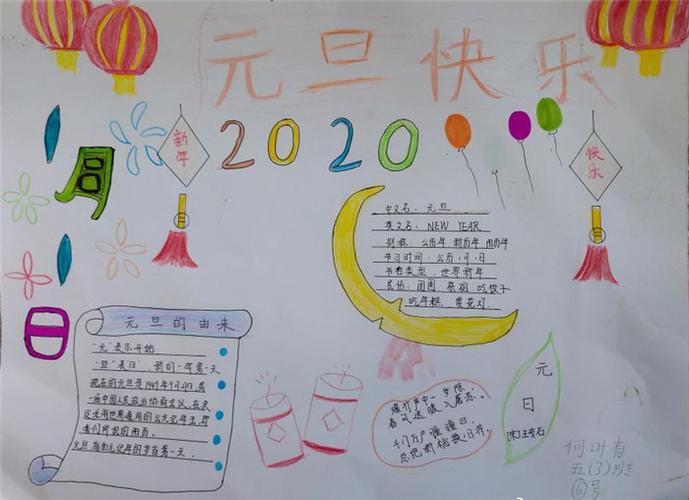 元旦快乐
新年
2020
快乐
1月1日
中文名：元旦
英文名：NEW YEAR
别称：公历年 新历年 阳历年
节日时间：公历1月1日
节日类型：世界新年
民俗：团圆 祭祖 吃饺子
吃年糕，赏花灯
元旦的由来
"元"表示开始
"旦"表"日"，新的一年第一天
现在的元旦是1949年9月27日，第
一届中国人民政治协商会议，在决
元旦，指公元记年的岁首第一天
爆竹声中一岁除
春风送暖入屠苏。
千门万户曈曈日，
总把新桃换旧符。
元日
[宋]王安石
何叶有
五(3)班
⑥号